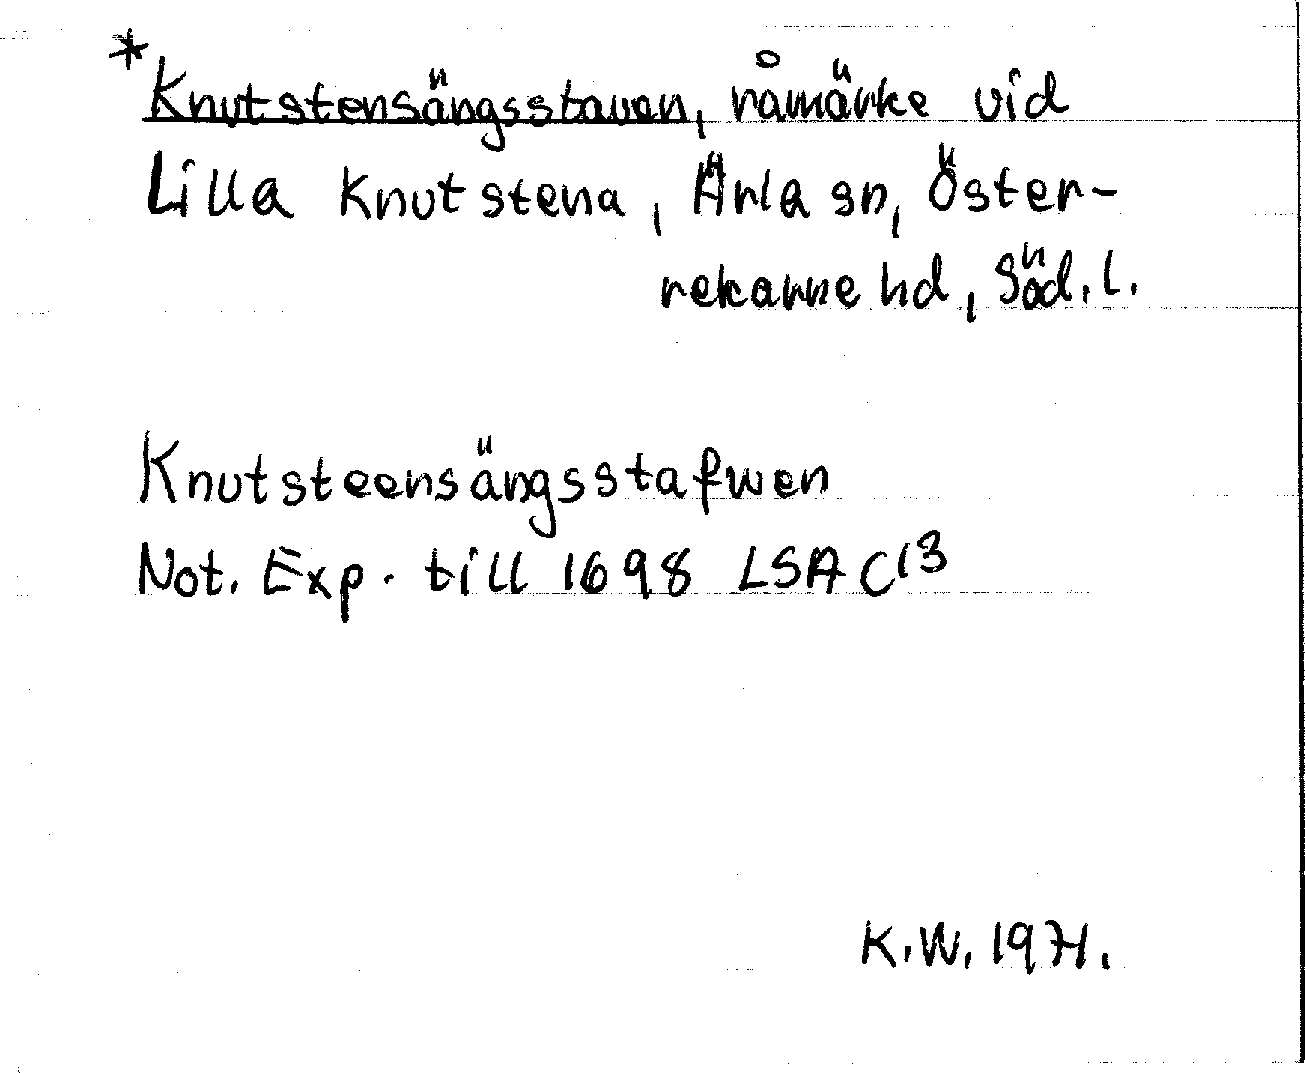 *Knutstensängsstaven, råmärke vid
Lilla Knutstena, Ärla sn, Öster-
rekarne hd, Söd. l.
Knutsteensängsstafwen
Not. Exp. till 1698 LSA C13
K.W. 1971.